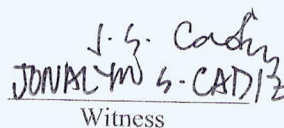 J. S. Cadiz
JONALYN S. CADIZ
Witness